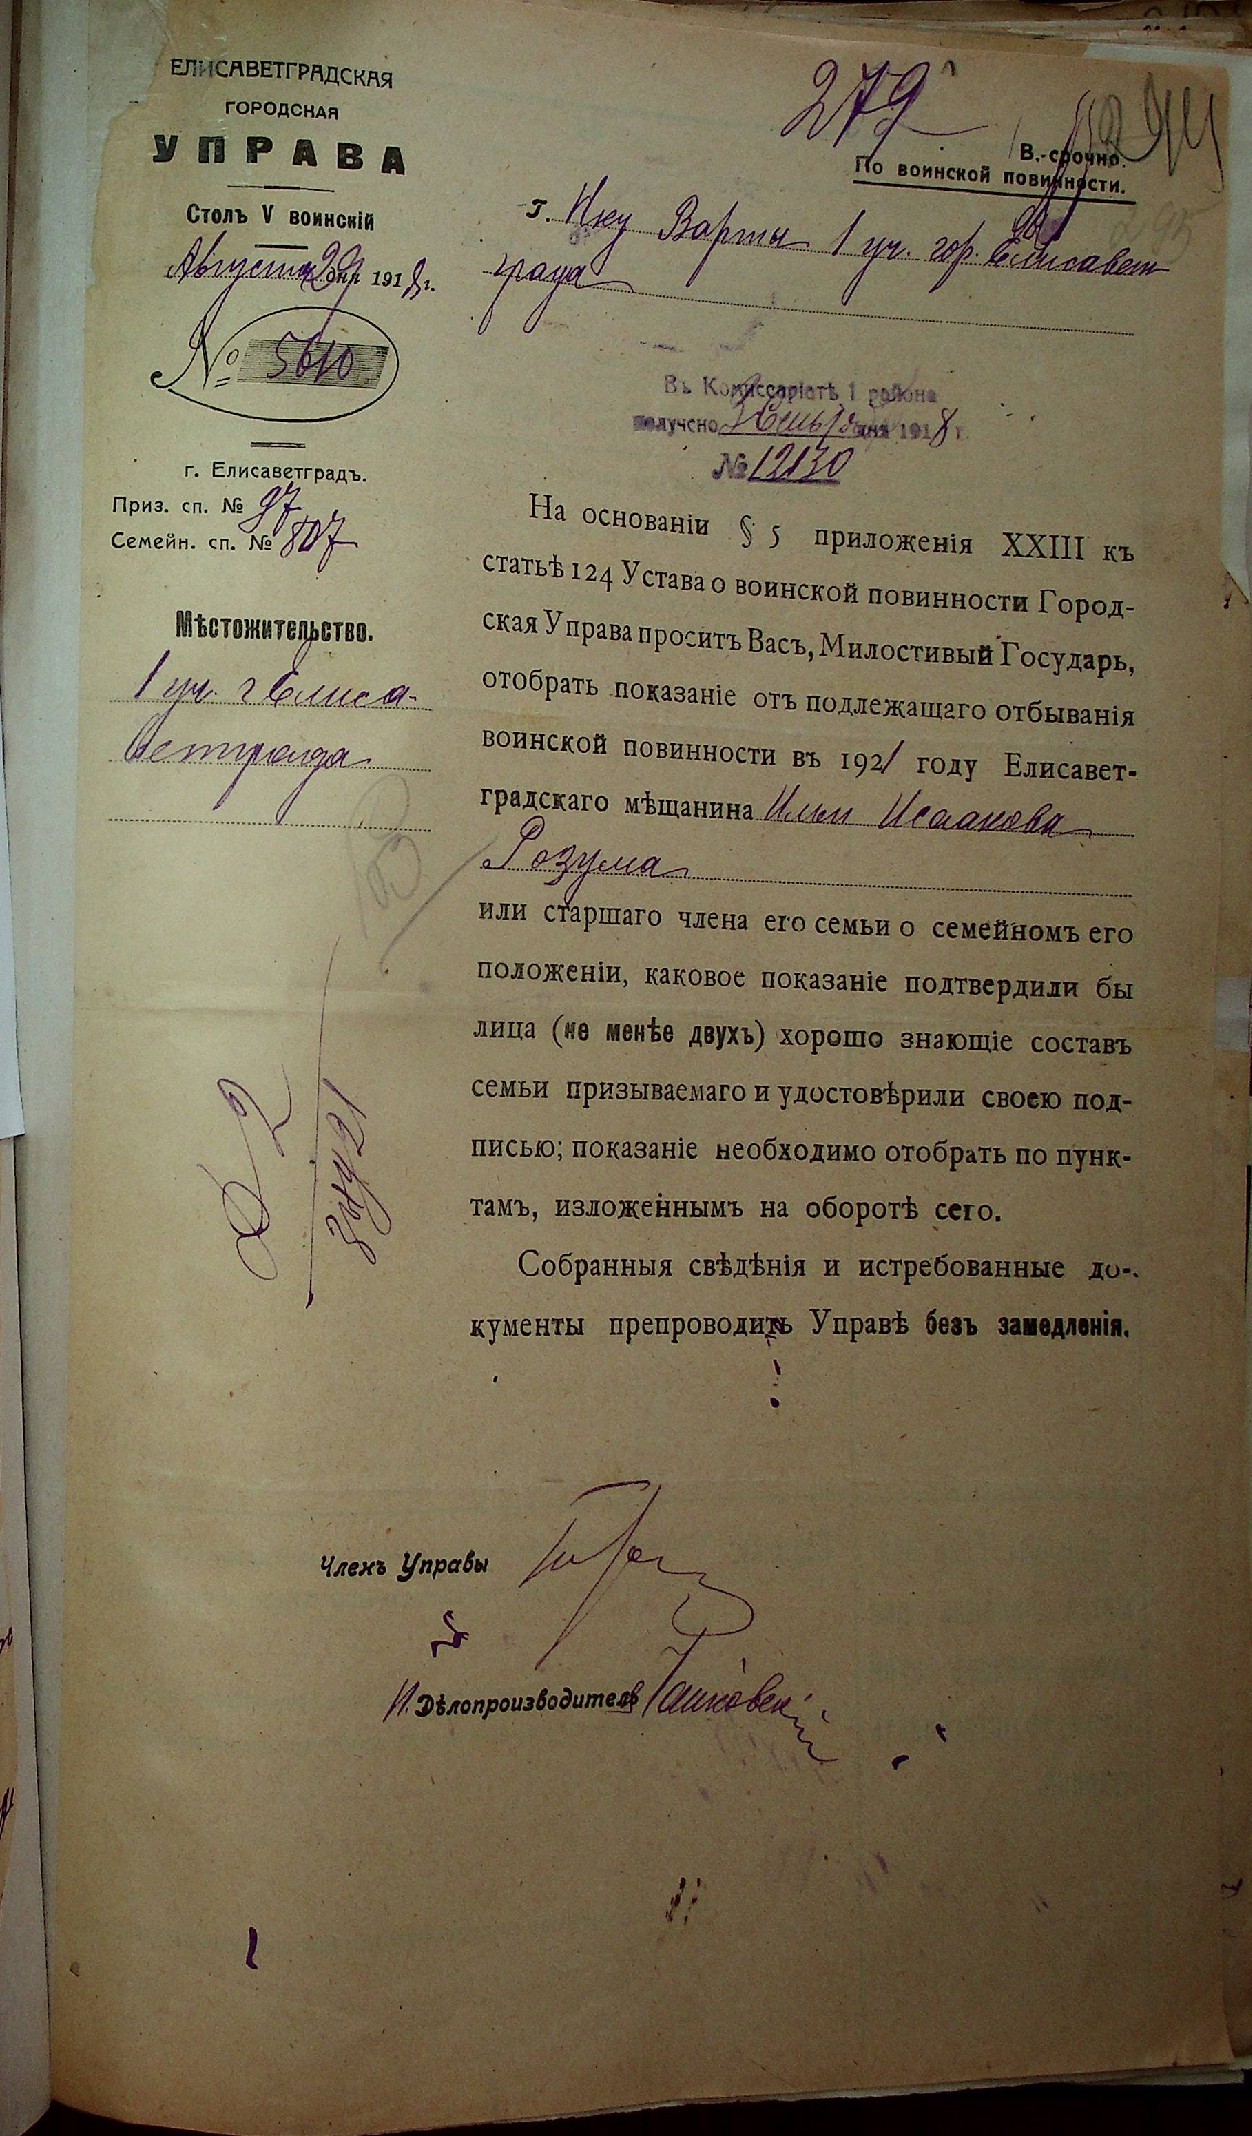 ЕЛИСАВЕТГРАДСКАЯ
ГОРОДСКАЯ
УПРАВА
Столъ V воинскій
Августа 29 дня 1918 г.
№ 5610
г. Елисаветградъ.
Приз. сп. № 97
Семейн. сп. № 807
Мѣстожительство.
1 уч. г Елиса-
ветграда
279
В.-срочно.
По воинской повинности.
г. Нку Варты 1 уч. гор. Елисавет
града
Въ Комиссаріатѣ 1 района
получено 3 Сент дня 1918 г.
№ 12130
На основаніи § 5 приложенія XXIII къ
статьѣ 124 Устава о воинской повинности Город-
ская Управа проситъ Васъ, Милостивый Государь,
отобрать показаніе отъ подлежащаго отбыванія
воинской повинности въ 1921 году Елисавет-
градскаго мѣщанина Ильи Исаакова
Розума
или старшаго члена его семьи о семейномъ его
положеніи, каковое показаніе подтвердили бы
лица (не менѣе двухъ) хорошо знающіе составъ
семьи призываемаго и удостовѣрили своею под-
писью; показаніе необходимо отобрать по пунк-
тамъ, изложеннымъ на оборотѣ сего.
Собранныя свѣдѣнія и истребованные до-
кументы препроводить Управѣ безъ замедленія.
Членъ Управы
И. Дѣлопроизводителя